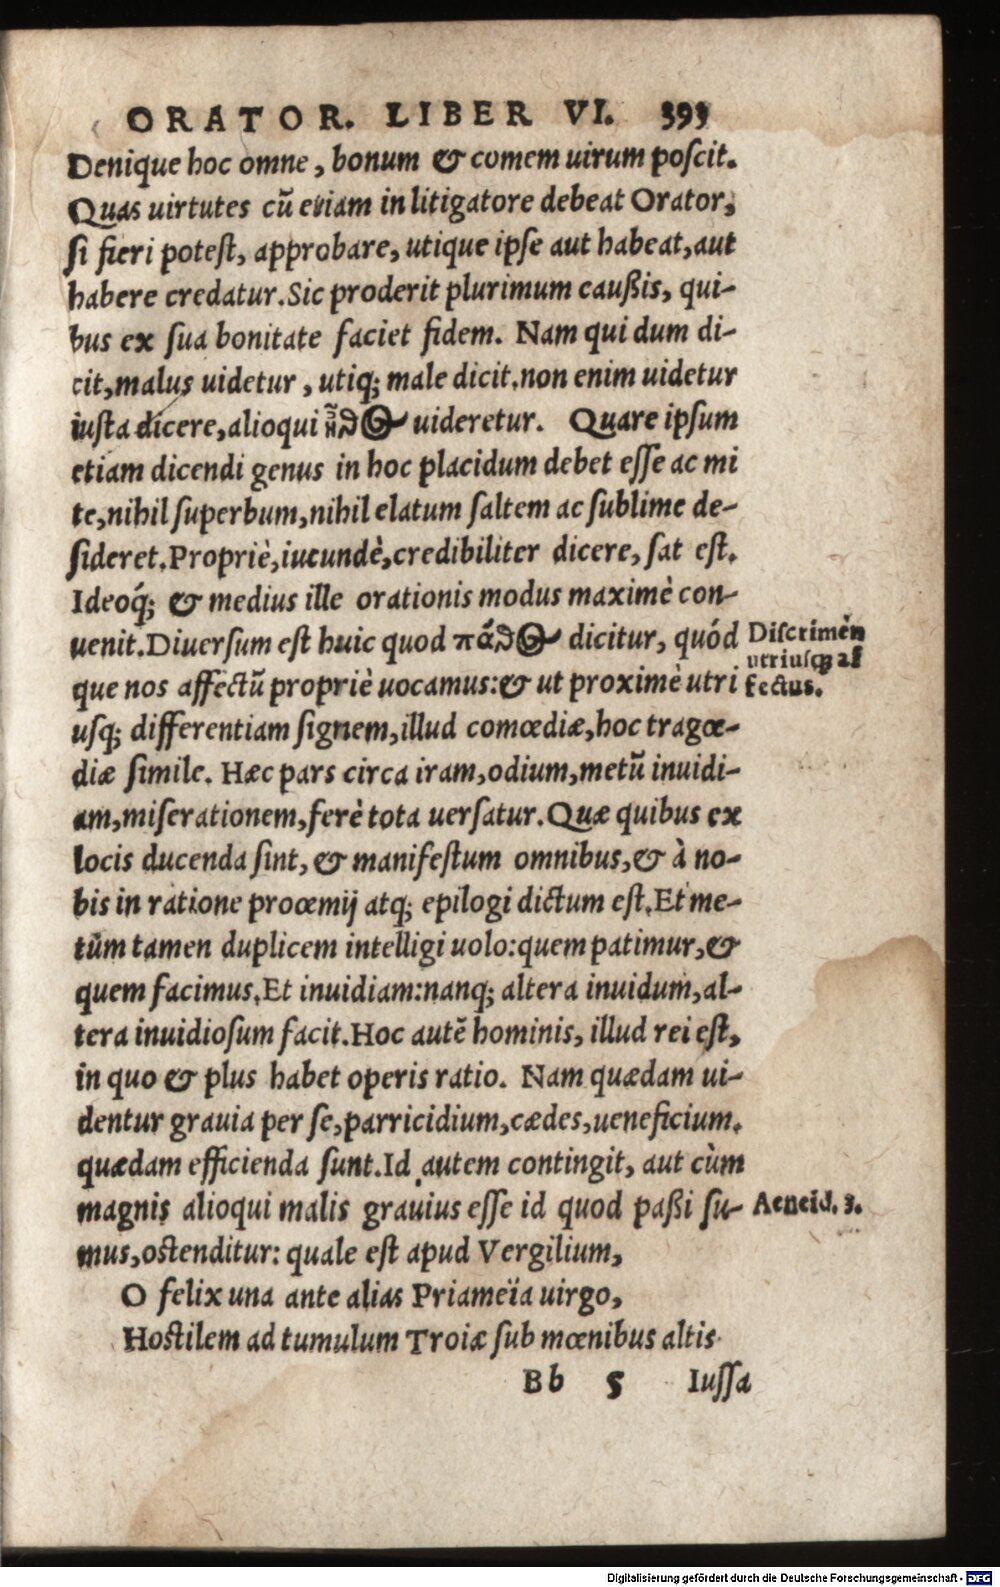 ORATOR. LIBER VI. 393
Denique hoc omne, bonum & comem uirum poscit.
Quas uirtutes cū etiam in litigatore debeat Orator,
si fieri potest, approbare, utique ipse aut habeat, aut
habere credatur. Sic proderit plurimum caußis, qui-
bus ex sua bonitate faciet fidem. Nam qui dum di-
cit, malus uidetur, utiq; male dicit. non enim uidetur
iusta dicere, alioqui ἦθος uideretur. Quare ipsum
etiam dicendi genus in hoc placidum debet esse ac mi
te, nihil superbum, nihil elatum saltem ac sublime de-
sideret. Propriè, iucundè, credibiliter dicere, sat est.
Ideoq́; & medius ille orationis modus maximè con-
uenit. Diuersum est huic quod πάθος dicitur, quód
Discrimen
utriusq; af
fectus.
que nos affectū propriè uocamus: & ut proximè utri
usq; differentiam signem, illud comœdiæ, hoc tragœ-
diæ simile. Hæc pars circa iram, odium, metū inuidi-
am, miserationem, ferè tota uersatur. Quæ quibus ex
locis ducenda sint, & manifestum omnibus, & à no-
bis in ratione proœmij atq; epilogi dictum est. Et me-
tum tamen duplicem intelligi uolo: quem patimur, &
quem facimus. Et inuidiam: nanq; altera inuidum, al-
tera inuidiosum facit. Hoc autē hominis, illud rei est,
in quo & plus habet operis ratio. Nam quædam ui-
dentur grauia per se, parricidium, cædes, ueneficium.
quædam efficienda sunt. Id autem contingit, aut cùm
magnis alioqui malis grauius esse id quod paßi su-
Aeneid. 3.
mus, ostenditur: quale est apud Vergilium,
O felix una ante alias Priameïa uirgo,
Hostilem ad tumulum Troiæ sub mœnibus altis
Bb 5 Iussa
Digitalisierung gefördert durch die Deutsche Forschungsgemeinschaft - DFG